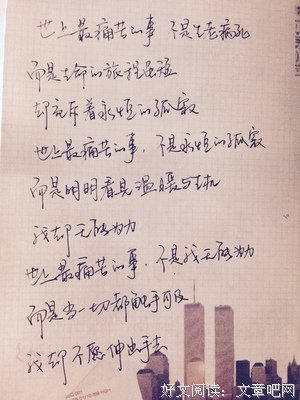 世上最痛苦的事 不是生老病死
而是生命的旅程虽短
却充斥着永恒的孤寂
世上最痛苦的事，不是永恒的孤寂
而是明明看见温暖与生机
我却无能为力
世上最痛苦的事，不是我无能为力
而是当一切都触手可及
我却不愿伸出手去
好文阅读：文章吧网